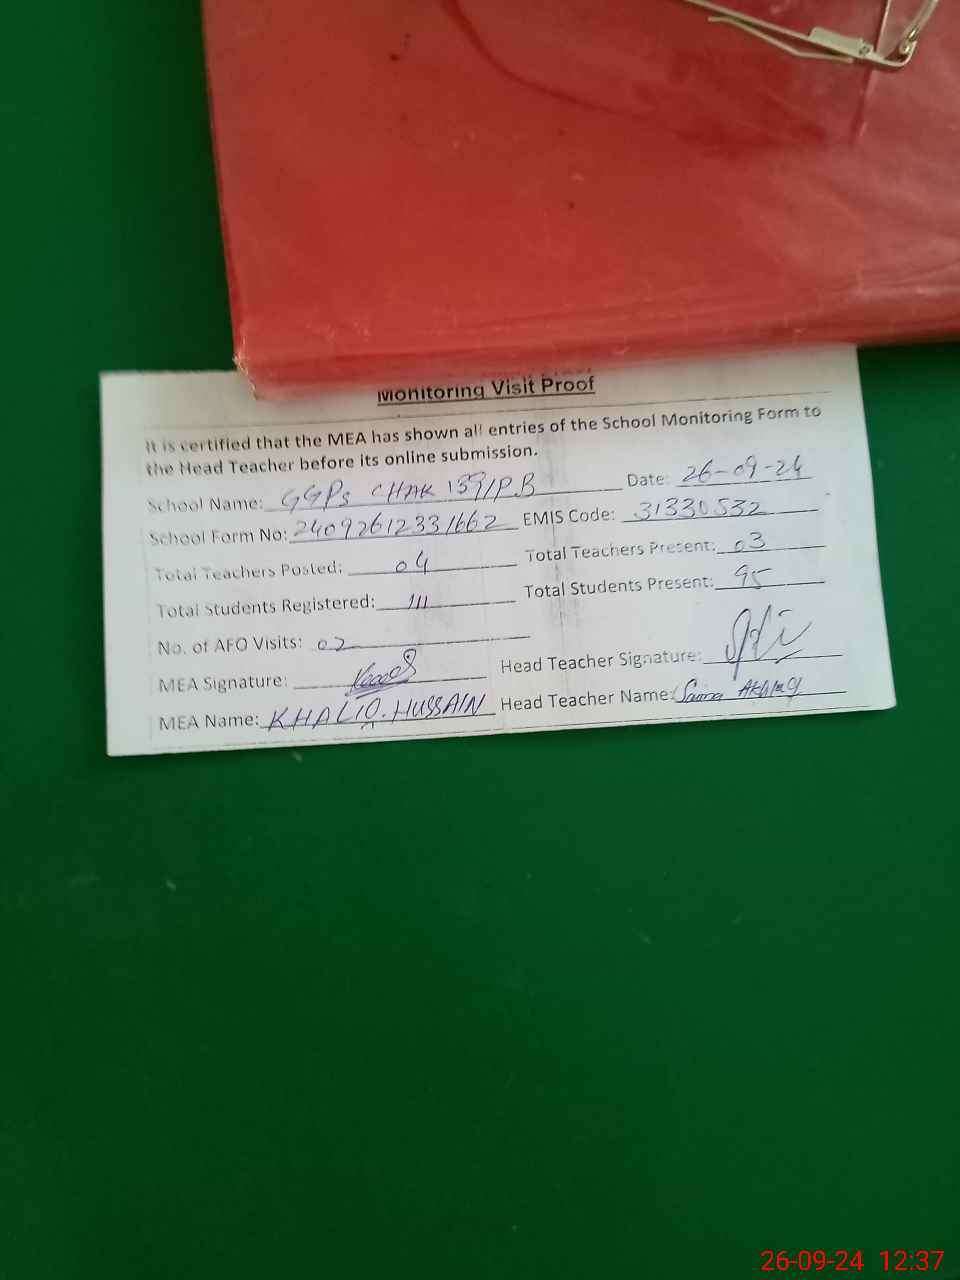 Monitoring Visit Proof
It is certified that the MEA has shown all entries of the School Monitoring Form to
the Head Teacher before its online submission.
School Name: GGPS CHAK 139/P.B Date: 26-09-24
School Form No: 24092612331662 EMIS Code: 31330532
Total Teachers Posted: 04 Total Teachers Present: 03
Total Students Registered: 111 Total Students Present: 95
No. of AFO Visits: 02
MEA Signature: Head Teacher Signature:
MEA Name: KHALIQ.HUSSAIN Head Teacher Name:
26-09-24 12:37